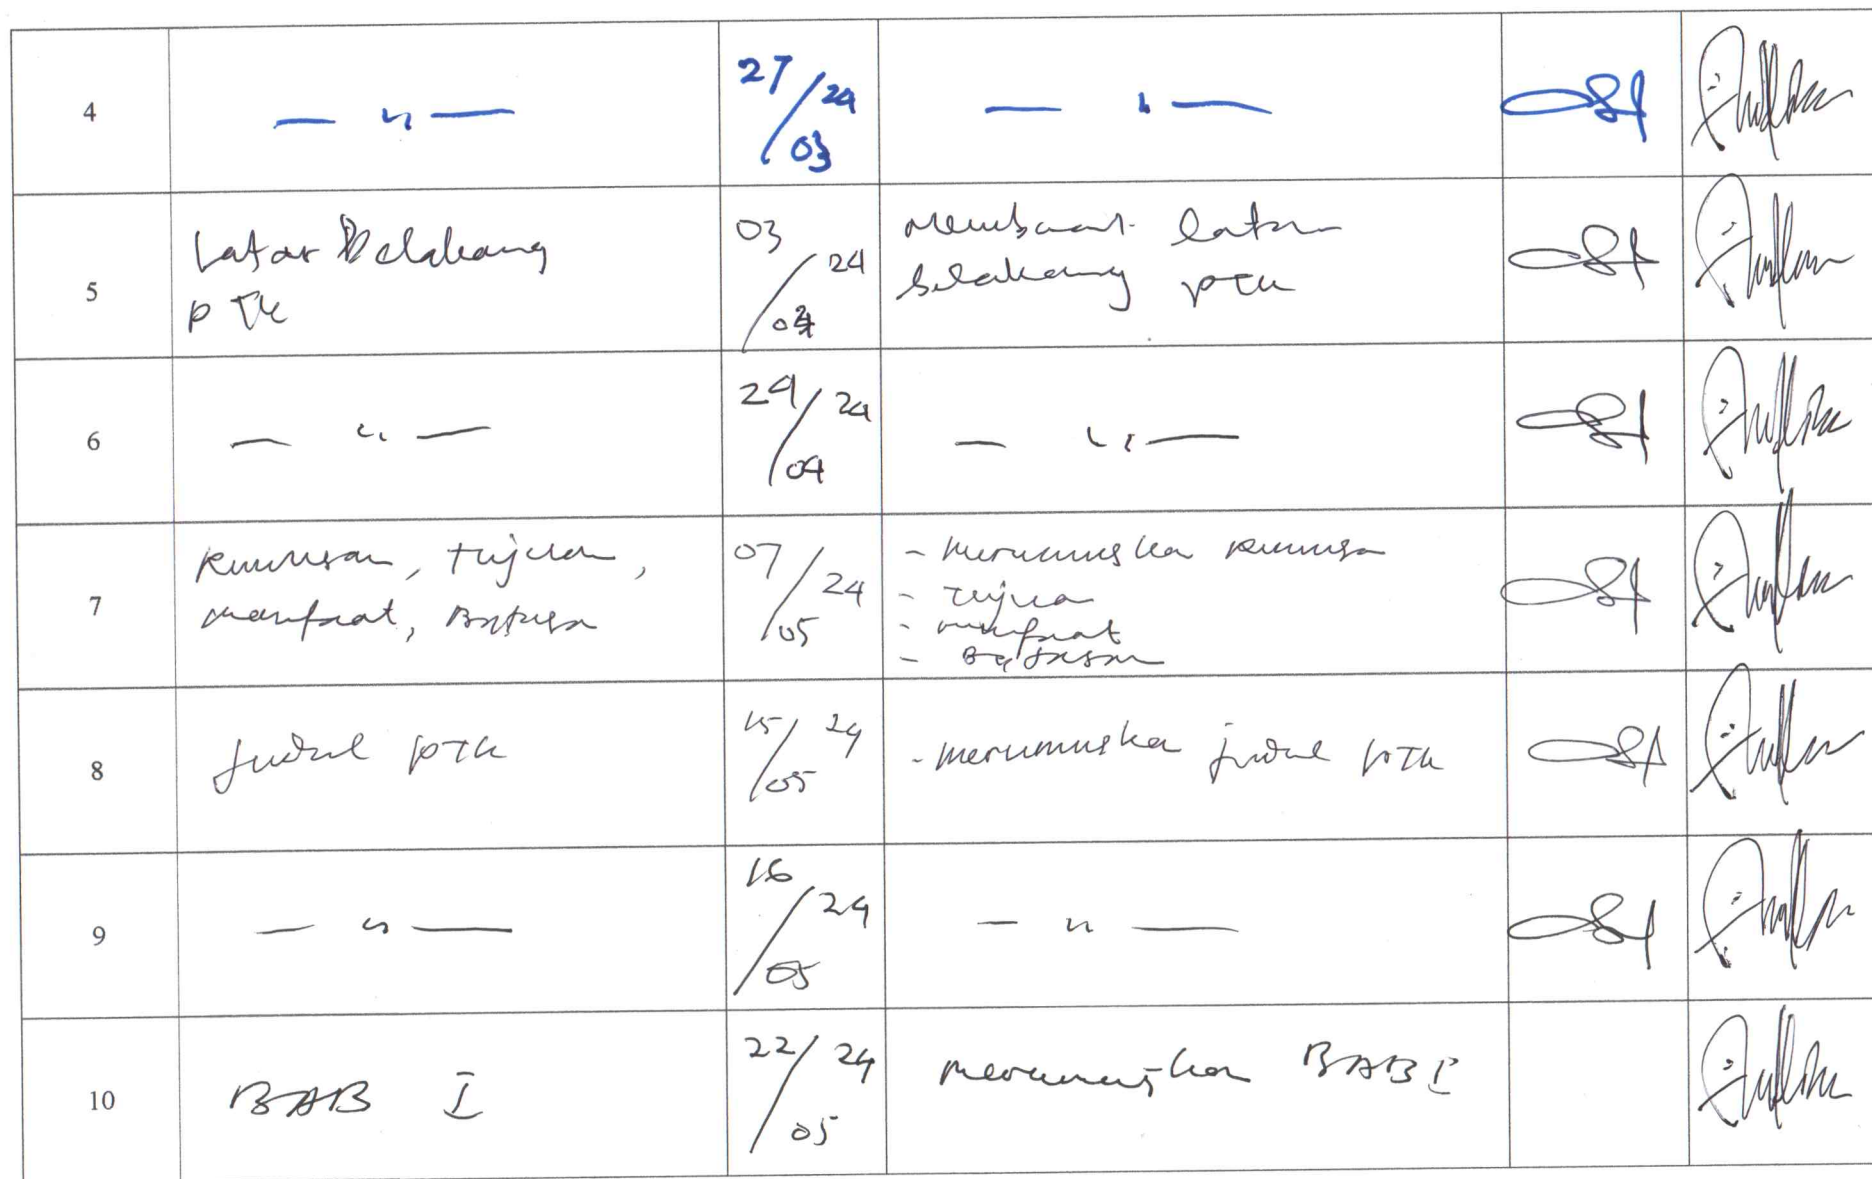 4 — 〃 — 27/03 24 — 〃 —
5 Latar Belakang 03/04 24 Membuat latar
PTK belakang PTK
6 — 〃 — 24/04 24 — 〃 —
7 Rumusan, Tujuan, 07/05 24 - Merumuska Rumusa
manfaat, Batasan - Tujua
- manfaat
- Batasan
8 Judul PTK 15/05 24 - merumuska judul PTK
9 — 〃 — 16/05 24 — 〃 —
10 BAB I 22/05 24 merumuskan BAB I